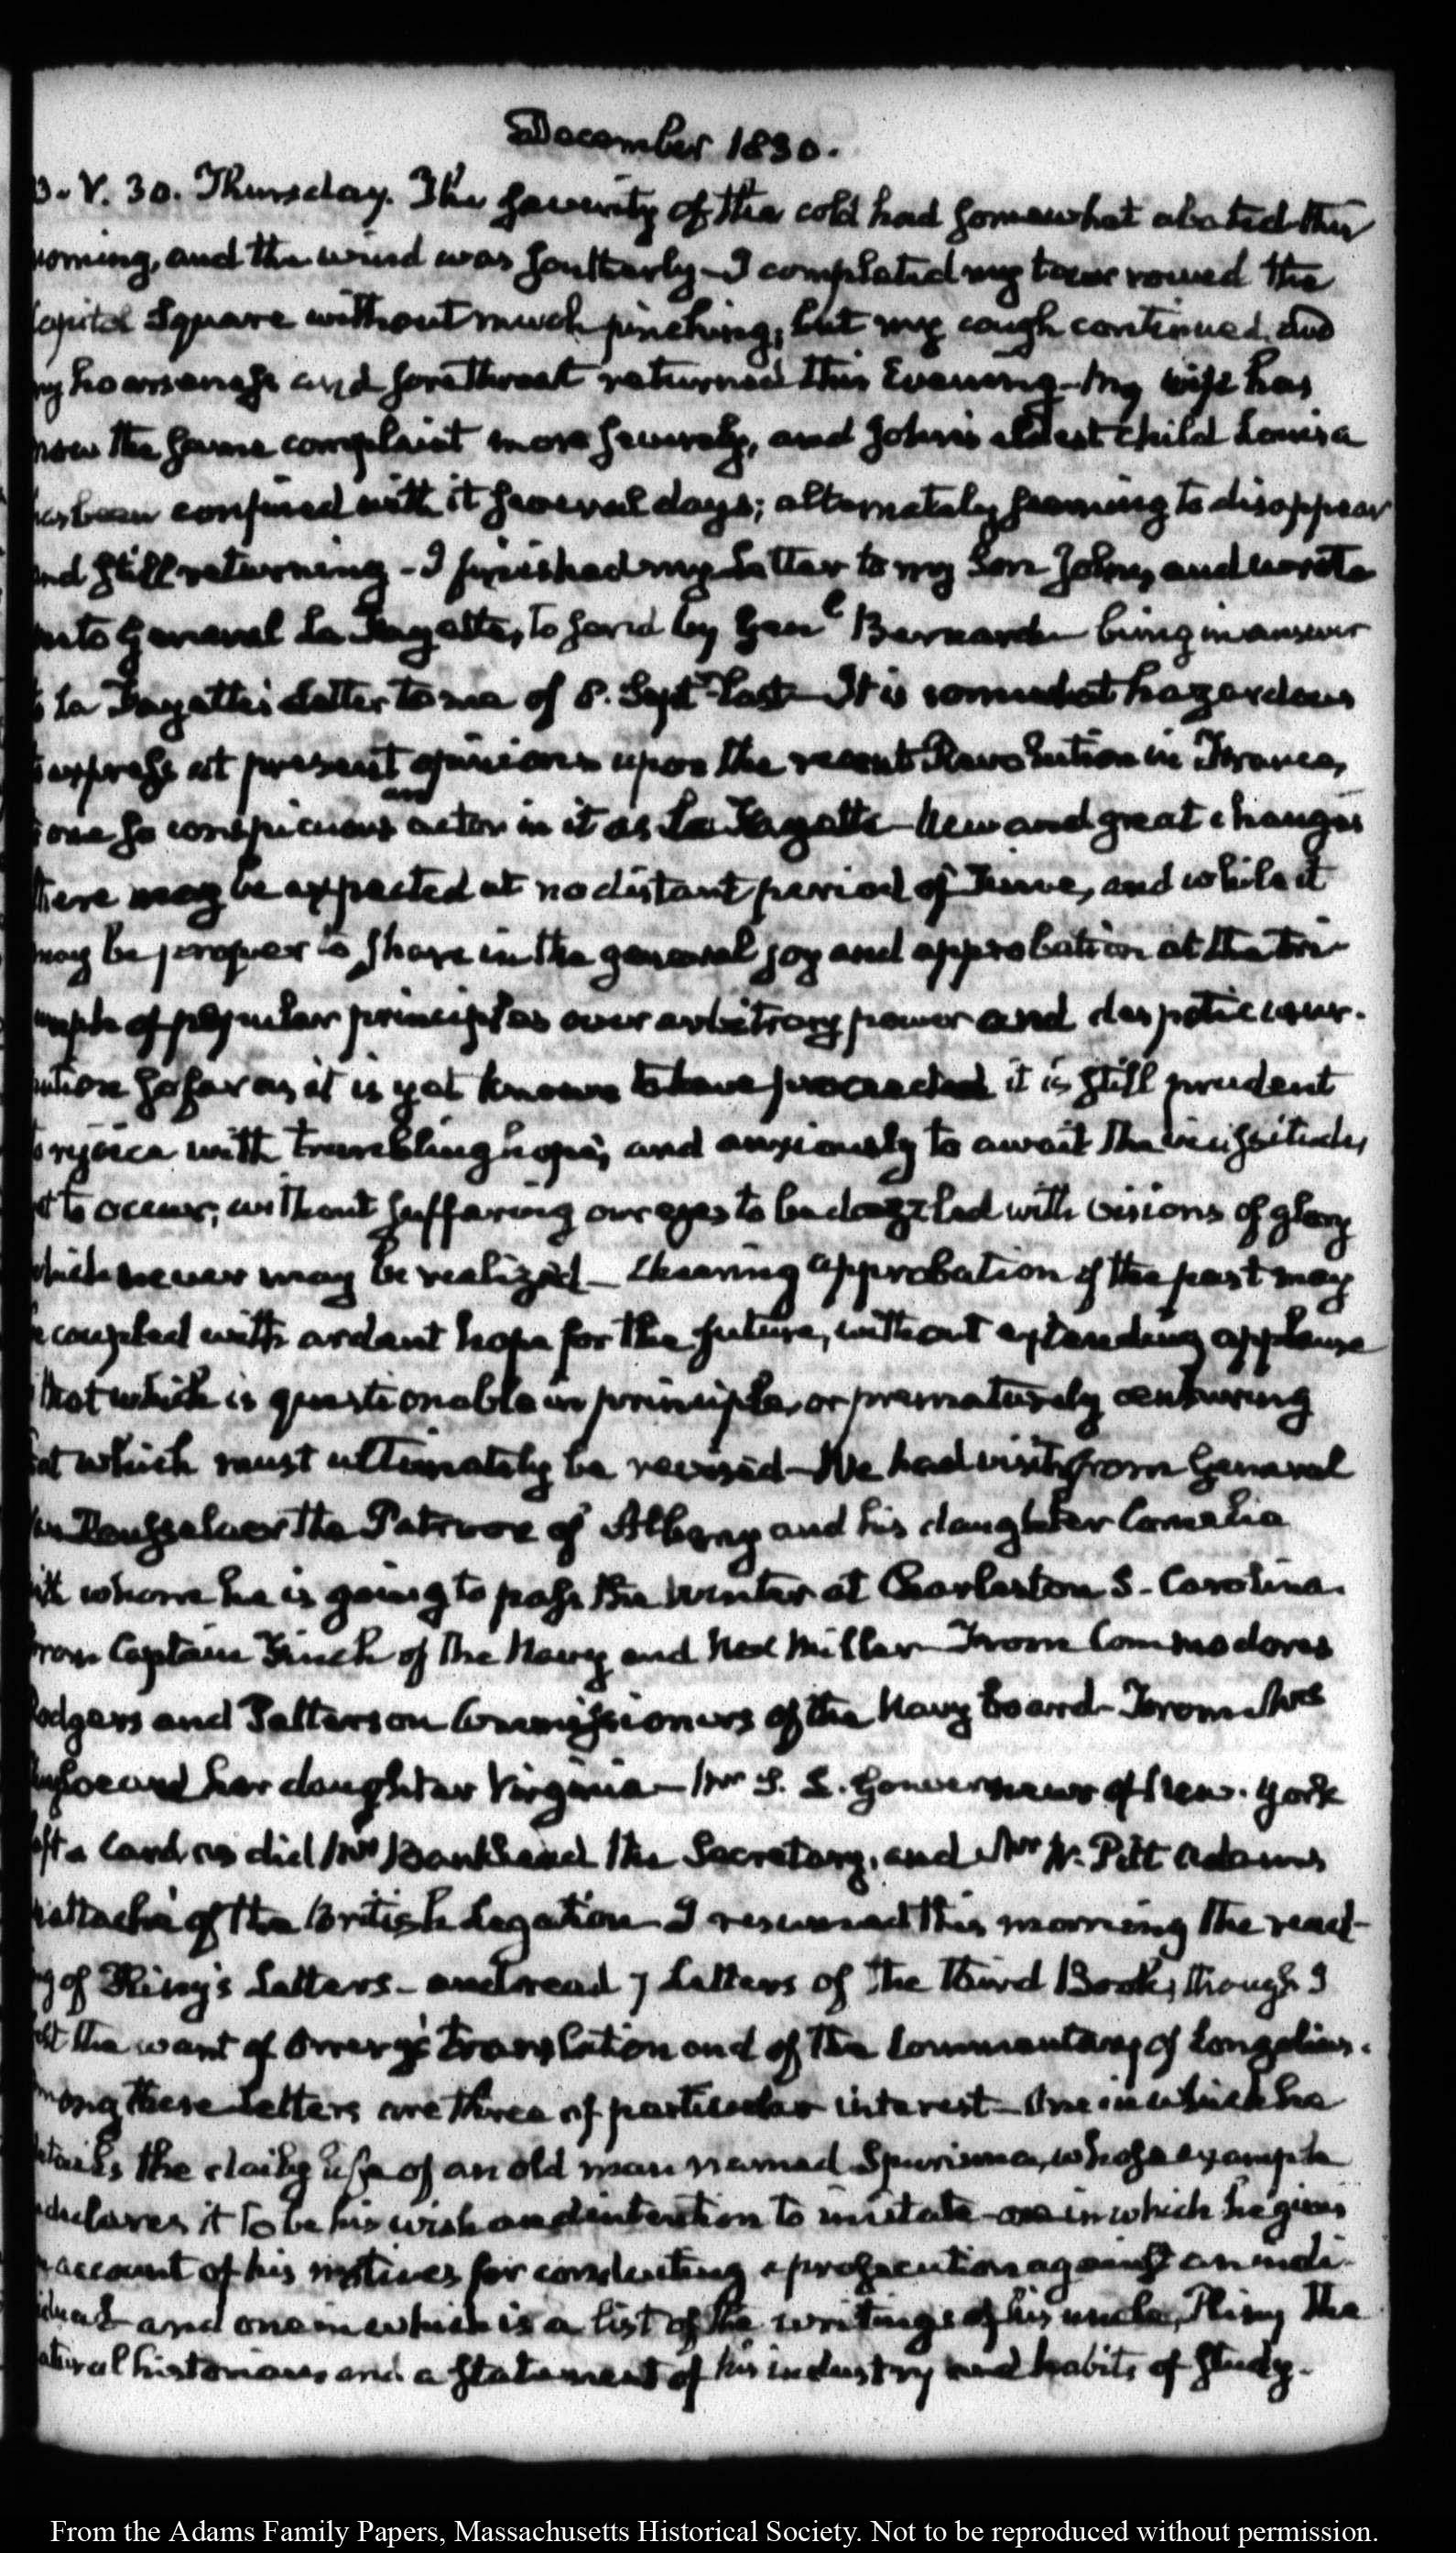 December 1830.
3. V. 30. Thursday. The severity of the cold had somewhat abated this
morning, and the wind was Southerly - I completed my tour round the
Capitol Square without much pinching, but my cough continued and
my hoarseness and sore throat returned this Evening - My wife has
now the same complaint more severely, and John's eldest child Louisa
has been confined with it several days; alternately seeming to disappear
and still returning - I finished my Letter to my Son John, and wrote
to General La Fayette, to send by Genl Bernard being in answer
to La Fayette's Letter to me of 8. Septr last - It is somewhat hazardous
to express at present opinions upon the recent Revolution in France,
to one so conspicuous an actor in it as La Fayette - New and great changes
there may be expected at no distant period of Time, and while it
may be proper to share in the general joy and approbation at the tri-
umph of popular principles over arbitrary power and despotic usur-
pation so far as it is yet known to have proceeded it is still prudent
to rejoice with trembling hope, and anxiously to await the vicissitudes
yet to occur, without suffering our eyes to be dazzled with visions of glory
which never may be realized - Cheering approbation of the past may
be coupled with ardent hope for the future, without extending applause
to that which is questionable in principle, or prematurely censuring
that which must ultimately be revised - We had visits from General
Van Rensselaer the Patroon of Albany and his daughter Cornelia
with whom he is going to pass the Winter at Charleston S. Carolina.
From Captain Finch of the Navy and Ned Miller - From Commodores
Rodgers and Patterson Commissioners of the Navy board - From Mrs
and her daughter Virginia - Mr S. L. Gouverneur of New-York
left a Card as did Mr Bankhead the Secretary, and Mr W. Pitt Adams
attaché of the British Legation - I resumed this morning the read-
ing of Pliny's Letters - and read 7 Letters of the Third Book, though I
felt the want of Orrery's translation and of the Commentary of Longolius.
Among these Letters are three of particular interest - One in which he
details the daily life of an old man named Spurinna, whose example
he declares it to be his wish and intention to imitate - one in which he gives
an account of his motives for conducting a prosecution against an indi-
vidual and one in which is a list of the writings of his uncle, Pliny the
natural historian and a statement of his industry and habits of study.
From the Adams Family Papers, Massachusetts Historical Society. Not to be reproduced without permission.